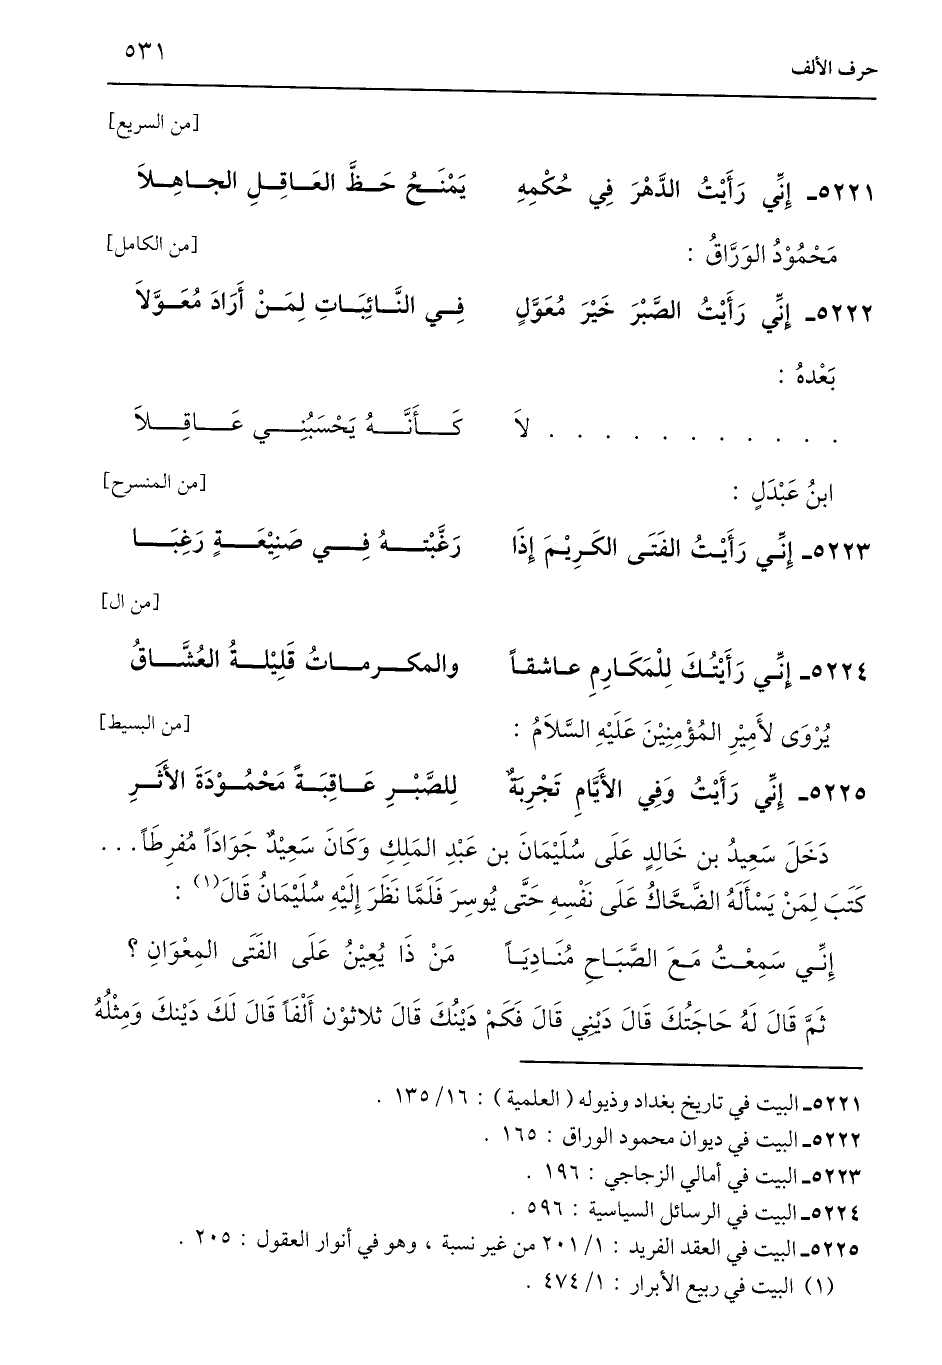 حرف الألف ٥٣١
[من السريع]
٥٢٢١ـ إِنِّي رَأَيْتُ الدَّهْرَ فِي حُكْمِهِ يَمْنَـحُ حَـظَّ العَـاقِـلِ الجـاهِـلاَ
مَحْمُوْدُ الوَرَّاقُ : [من الكامل]
٥٢٢٢ـ إِنِّي رَأَيْتُ الصَّبْرَ خَيْرَ مُعَوَّلٍ فِـي النَّـائِبَـاتِ لِمَـنْ أَرَادَ مُعَـوَّلاَ
بَعْدهُ :
. . . . . . . . . . . لاَ كَـأَنَّـهُ يَحْسَبُنِـي عَـاقِـلاَ
ابنُ عَبْدَلٍ : [من المنسرح]
٥٢٢٣ـ إِنِّـي رَأَيْـتُ الفَتَـى الكَرِيْـمَ إِذَا رَغَّبْتـهُ فِـي صَنِيْعَـةٍ رَغِبَـا
[من ال]
٥٢٢٤ـ إِنِّـي رَأَيْتُـكَ لِلْمَكَـارِمِ عـاشقـاً والمكـرمـاتُ قَلِيْلـةُ العُشَّـاقُ
يُرْوَى لأَمِيْرِ المُؤْمِنِيْنَ عَلَيْهِ السَّلاَمُ : [من البسيط]
٥٢٢٥ـ إِنِّي رَأَيْتُ وَفِي الأَيَّامِ تَجْرِبَةٌ لِلصَّبْـرِ عَـاقِبَـةً مَحْمُـوْدَةَ الأَثَـرِ
دَخَلَ سَعِيدُ بن خَالِدٍ عَلَى سُلَيْمَانَ بن عَبْدِ المَلِكِ وَكَانَ سَعِيْدٌ جَوَادَاً مُفرِطَاً . . .
كَتَبَ لِمَنْ يَسْأَلَهُ الضَّحَّاكُ عَلَى نَفْسِهِ حَتَّى يُوسِرَ فَلَمَّا نَظَرَ إِلَيْهِ سُلَيْمَانُ قَالَ(١) :
إِنِّـي سَمِعْـتُ مَـعَ الصَّبَـاحِ مُنَـادِيَـاً مَـنْ ذَا يُعِيْـنُ عَلَـى الفَتَـى المِعْوَانِ ؟
ثُمَّ قَالَ لَهُ حَاجَتُكَ قَالَ دَيْنِي قَالَ فَكَمْ دَيْنُكَ قَالَ ثلاثوْن أَلْفَاً قَالَ لَكَ دَيْنكَ وَمِثْلُهُ
٥٢٢١ـ البيت في تاريخ بغداد وذيوله ( العلمية ) : ١٦/ ١٣٥ .
٥٢٢٢ـ البيت في ديوان محمود الوراق : ١٦٥ .
٥٢٢٣ـ البيت في أمالي الزجاجي : ١٩٦ .
٥٢٢٤ـ البيت في الرسائل السياسية : ٥٩٦ .
٥٢٢٥ـ البيت في العقد الفريد : ١/ ٢٠١ من غير نسبة ، وهو في أنوار العقول : ٢٠٥ .
(١) البيت في ربيع الأبرار : ١/ ٤٧٤ .